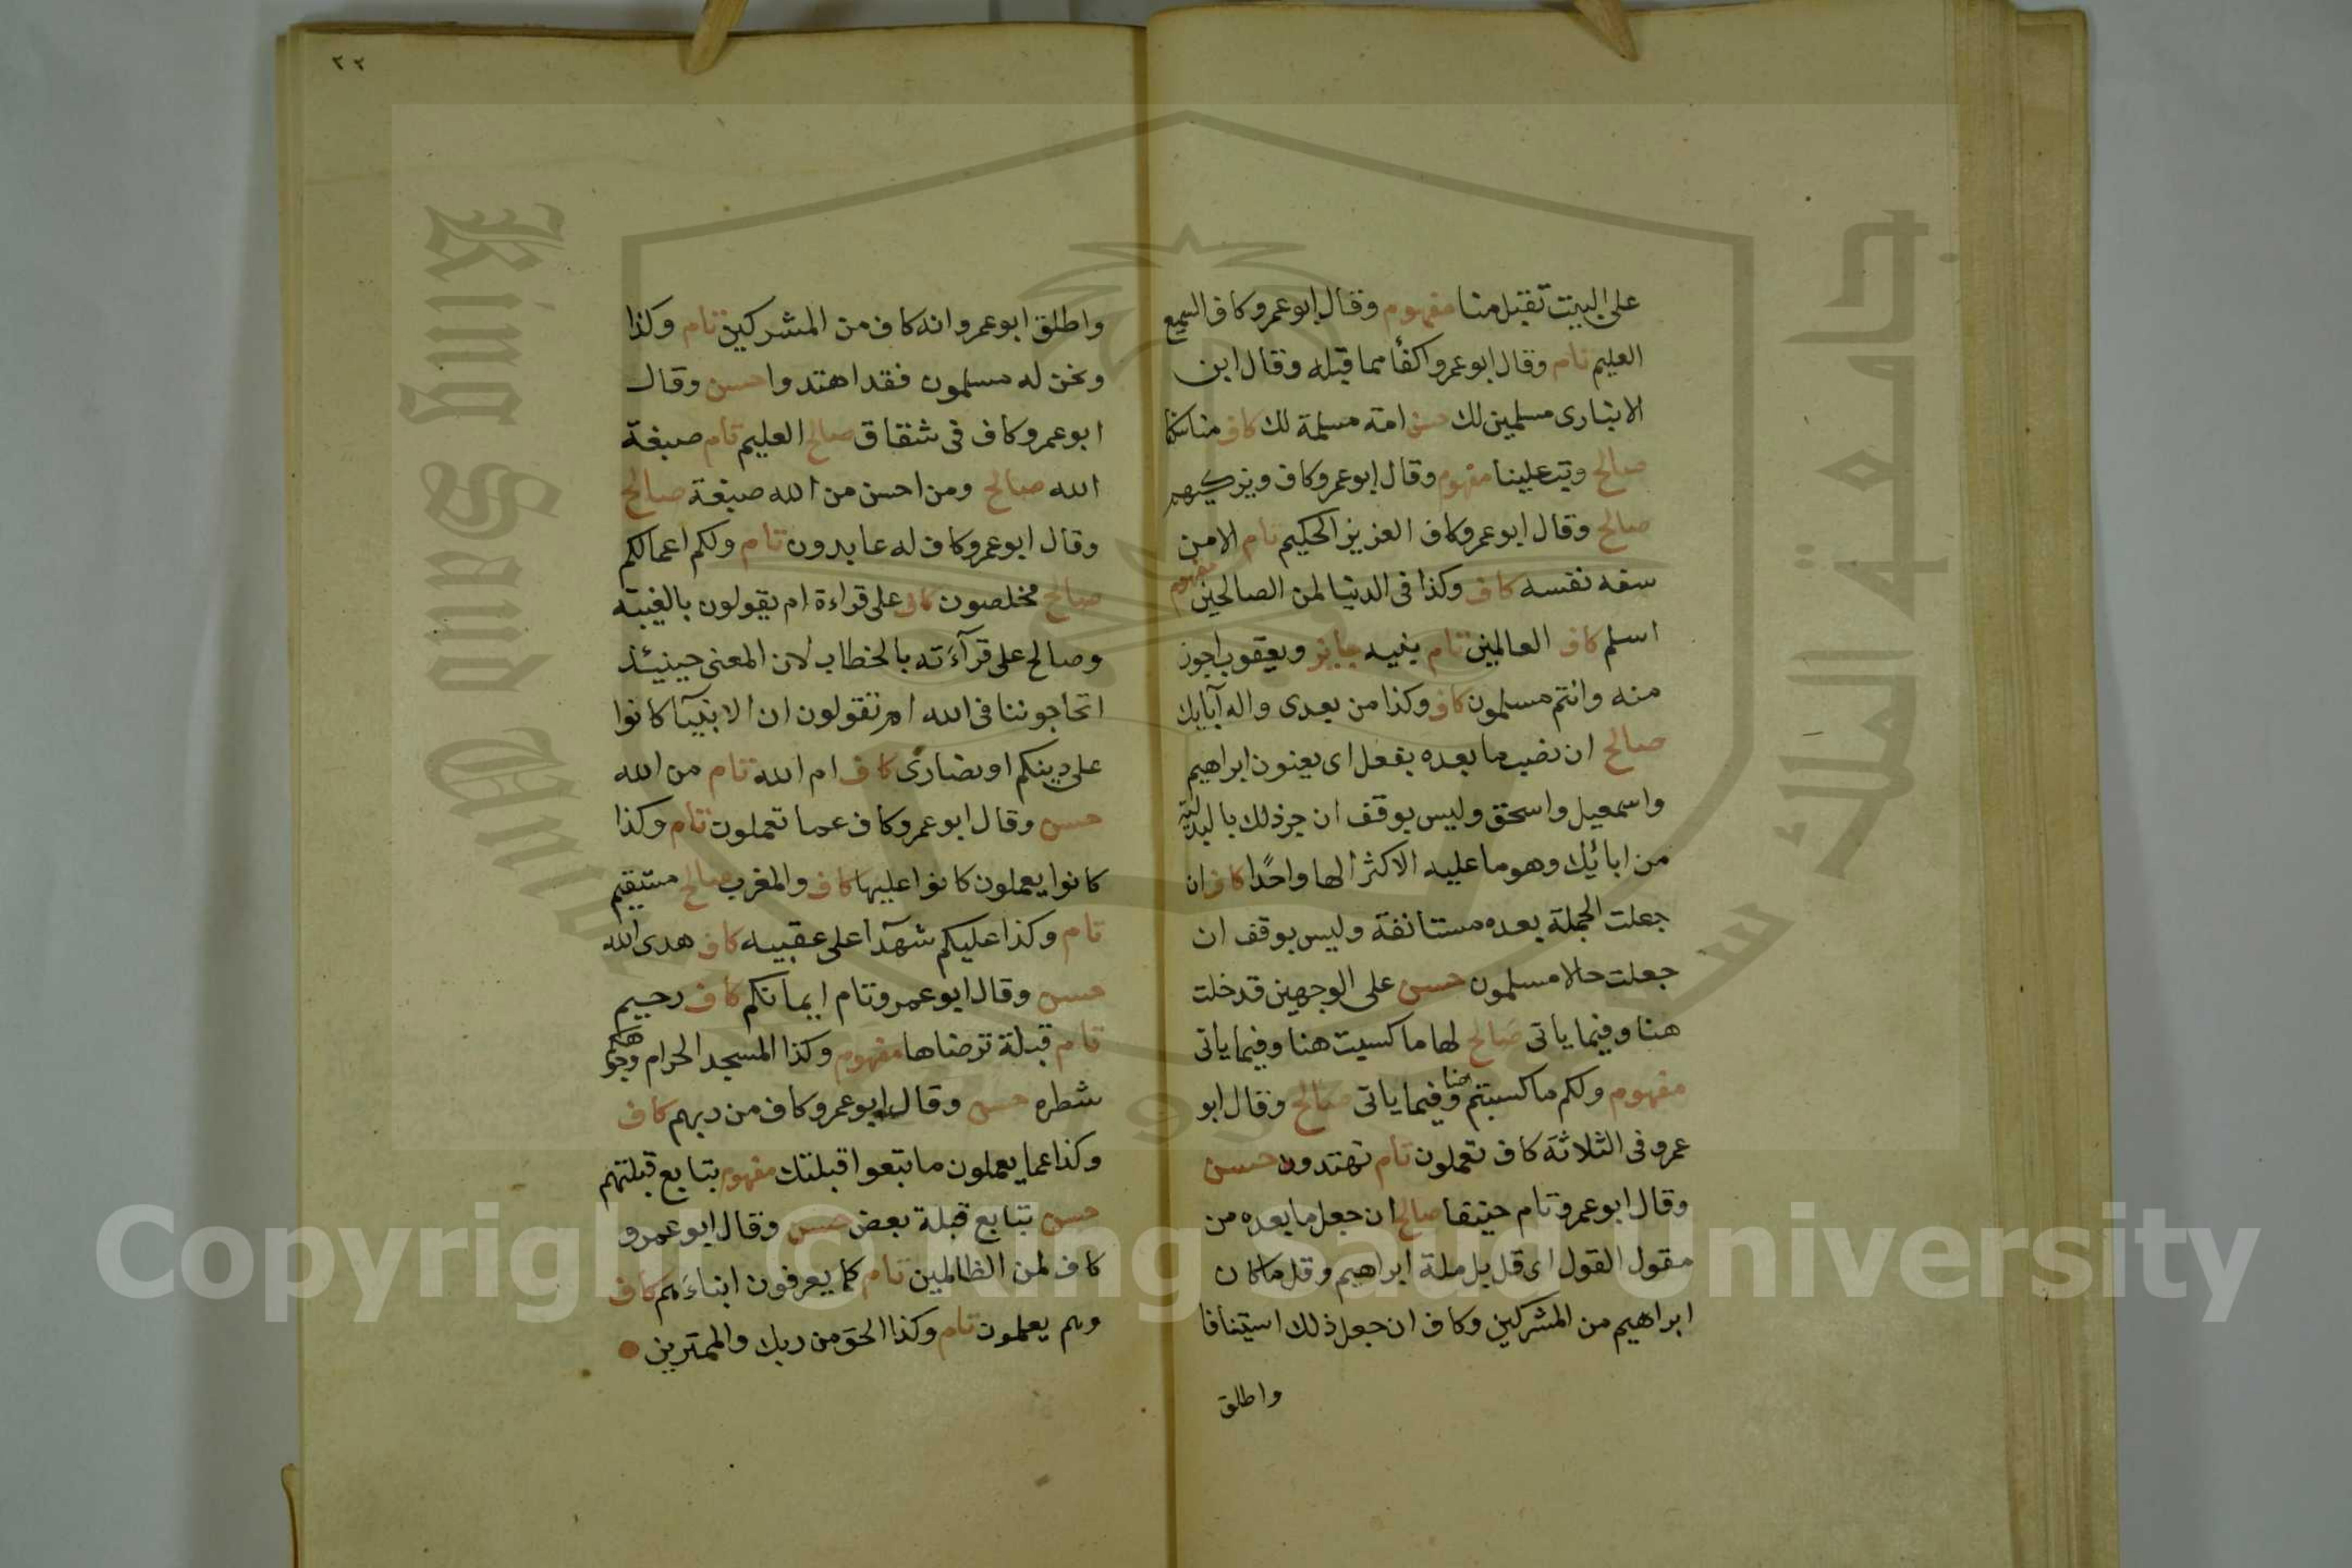 على البيت تقبل منا مفهوم وقال ابو عمرو كاف السميع
العليم تام وقال ابو عمرو اكفأ مما قبله وقال ابن
الانبارى مسلمين لك حسن امة مسلمة لك كاف مناسكنا
صالح وتب علينا مفهوم وقال ابو عمرو كاف ويزكيهم
صالح وقال ابو عمرو كاف العزيز الحكيم تام الا من
سفه نفسه كاف وكذا فى الدنيا لمن الصالحين مفهوم
اسلم كاف العالمين تام بنيه جايز ويعقوب اجوز
منه وانتم مسلمون كاف وكذا من بعدى واله آبايك
صالح ان نصب ما بعده بفعل اى يعنون ابراهيم
واسمعيل واسحق وليس بوقف ان جر ذلك بالبدلية
من ابائيك وهو ما عليه الاكثر الها واحدًا كاف ان
جعلت الجملة بعده مستانفة وليس بوقف ان
جعلت حالا مسلمون حسن على الوجهين قد خلت
هنا وفيما ياتى صالح لها ما كسبت هنا وفيما ياتى
مفهوم ولكم ما كسبتم هنا وفيما ياتى صالح وقال ابو
عمرو فى الثلاثة كاف تعملون تام تهتدون حسن
وقال ابو عمرو تام حنيفا صالح ان جعل ما بعده من
مقول القول اى قل بل ملة ابراهيم وقل ما كان
ابراهيم من المشركين وكاف ان جعل ذلك استينافا
واطلق
٢٢
واطلق ابو عمرو انه كاف من المشركين تام وكذا
ونحن له مسلمون فقد اهتدوا حسن وقال
ابو عمرو كاف فى شقاق صالح العليم تام صبغة
الله صالح ومن احسن من الله صبغة صالح
وقال ابو عمرو كاف له عابدون تام ولكم اعمالكم
صالح مخلصون كاف على قراءة ام يقولون بالغيبة
وصالح على قرآءته بالخطاب لان المعنى حينيئذ
اتحاجوننا فى الله ام تقولون ان الانبيآ كانوا
على دينكم او نصارى كاف ام الله تام من الله
حسن وقال ابو عمرو كاف عما تعملون تام وكذا
كانوا يعملون كانوا عليها كاف والمغرب صالح مستقيم
تام وكذا عليكم شهآدا على عقبيه كاف هدى الله
حسن وقال ابو عمرو تام ايمانكم كاف رحيم
تام قبلة ترضاها مفهوم وكذا المسجد الحرام وجوهكم
شطره حسن وقال ابو عمرو كاف من ربهم كاف
وكذا عما يعملون ما تبعوا قبلتك مفهوم بتابع قبلتهم
حسن بتابع قبلة بعض حسن وقال ابو عمرو
كاف لمن الظالمين تام كما يعرفون ابناءَهم كاف
وهم يعلمون تام وكذا الحق من ربك والممترين
King Saud University
جامعة الملك سعود
Copyright © King Saud University